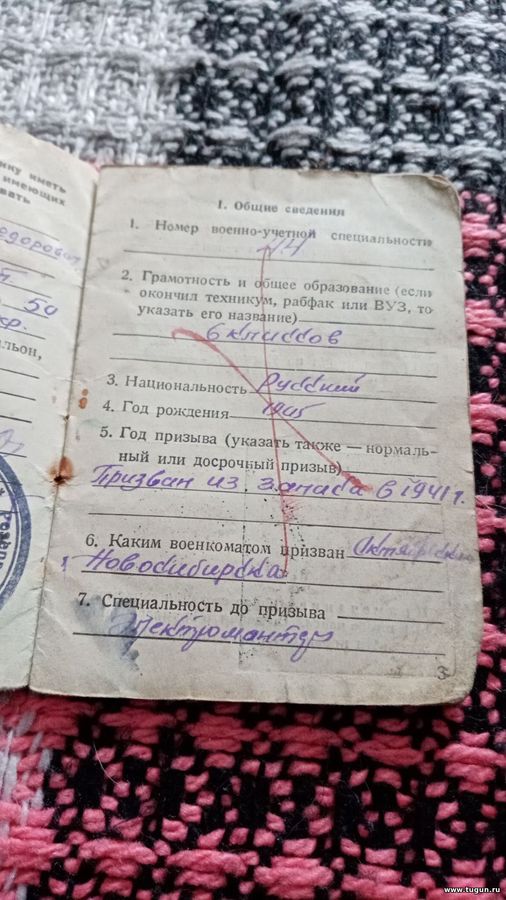 ину иметь
имеющих
вать
едорович
50
кр.
льон,
I. Общие сведения
1. Номер военно-учетной специальности
2. Грамотность и общее образование (если
окончил техникум, рабфак или ВУЗ, то
указать его название)
6 классов
3. Национальность Русский
4. Год рождения 1905
5. Год призыва (указать также — нормаль-
ный или досрочный призыв)
Призван из запаса в 1941 г.
6. Каким военкоматом призван Октябрьским
Новосибирска
7. Специальность до призыва
Электромантер
3
www.tugun.ru